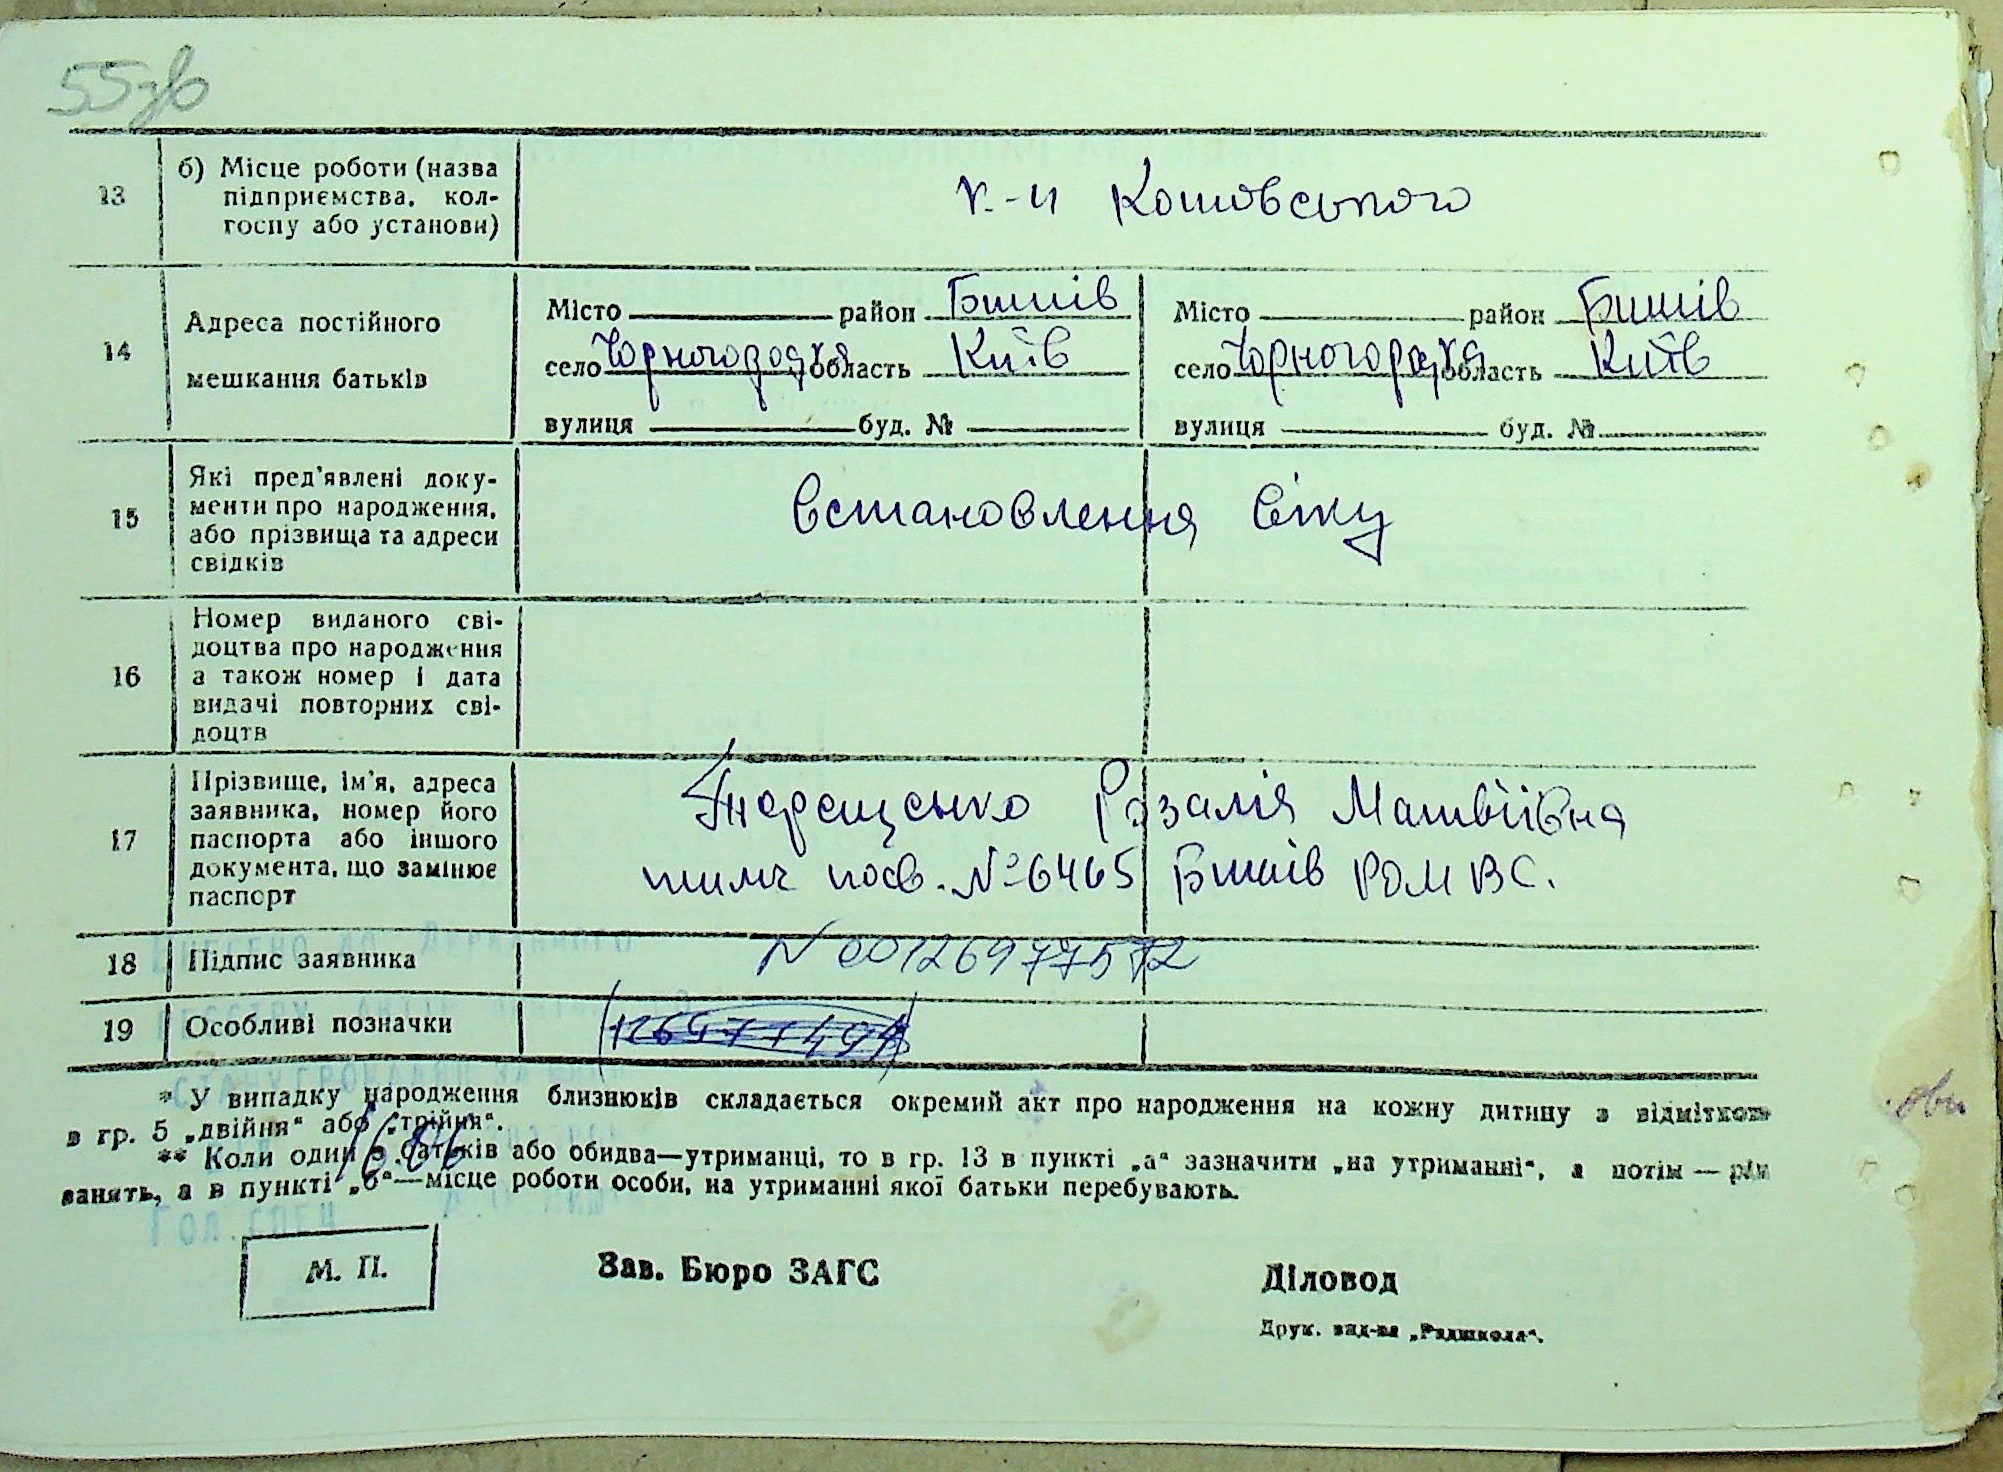 55зв
13
б) Місце роботи (назва
підприємства, кол-
госпу або установи)
к-п Котовського
14
Адреса постійного
мешкання батьків
Місто район Бишів
село Чорногородка область Київ
вулиця буд. №
Місто район Бишів
село Чорногородка область Київ
вулиця буд. №
15
Які пред'явлені доку-
менти про народження,
або прізвища та адреси
свідків
Встановлення віку
16
Номер виданого сві-
доцтва про народження
а також номер і дата
видачі повторних сві-
доцтв
17
Прізвище, ім'я, адреса
заявника, номер його
паспорта або іншого
документа, що замінює
паспорт
Терещенко Розалія Матвіївна
тимч посв. № 6465 Бишів РОМВС.
18
Підпис заявника
N 00126977572
19
Особливі позначки
Внесено до Державного
* У випадку народження близнюків складається окремий акт про народження на кожну дитину з відміткою
в гр. 5 „двійня“ або „трійня“.
** Коли один з батьків або обидва—утриманці, то в гр. 13 в пункті „а“ зазначити „на утриманні“, а потім — рід
занять, а в пункті „б“—місце роботи особи, на утриманні якої батьки перебувають.
Гол. спец
М. П.
Зав. Бюро ЗАГС
Діловод
Друк. вид-ва „Радшкола“.